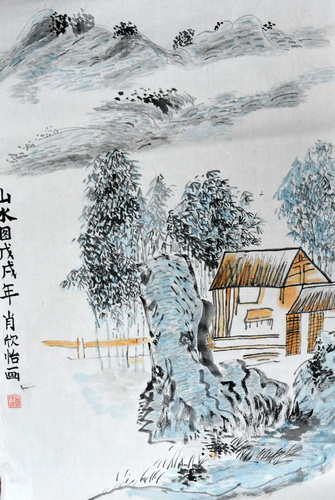 山水图戊戌年肖欣怡画